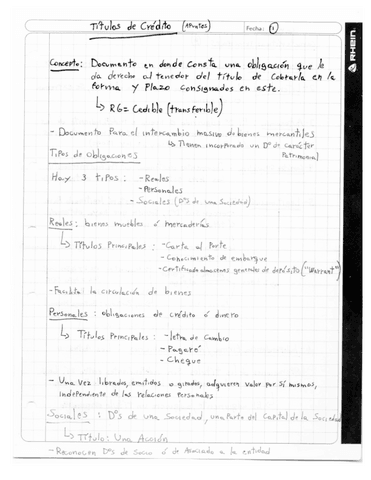 Títulos de Crédito (Apuntes) Fecha: 1
RHEIN
Concepto: Documento en donde consta una obligación que le
da derecho al tenedor del título de Cobrarla en la
forma y Plazo consignados en este.
↳ RG= Cedible (transferible)
- Documento Para el intercambio masivo de bienes mercantiles
↳ Tienen incorporado un Dº de carácter
Patrimonial
Tipos de obligaciones
Hay 3 tipos: - Reales
- Personales
- Sociales (Dºs de una Sociedad)
Reales: bienes muebles ó mercaderías
↳ Títulos Principales: - Carta al Porte
- Conocimiento de embarque
- Certificado almacenes generales de depósito ("Warrant")
- Facilita la circulación de bienes
Personales: obligaciones de crédito ó dinero
↳ Títulos Principales: - letra de Cambio
- Pagaré
- Cheque
- Una vez librados, emitidos o girados, adquieren valor por sí mismos,
independiente de las relaciones Personales
Sociales: Dºs de una Sociedad, una Parte del Capital de la Sociedad
↳ Título: Una Acción
- Reconocen Dºs de Socio ó de Asociado a la entidad